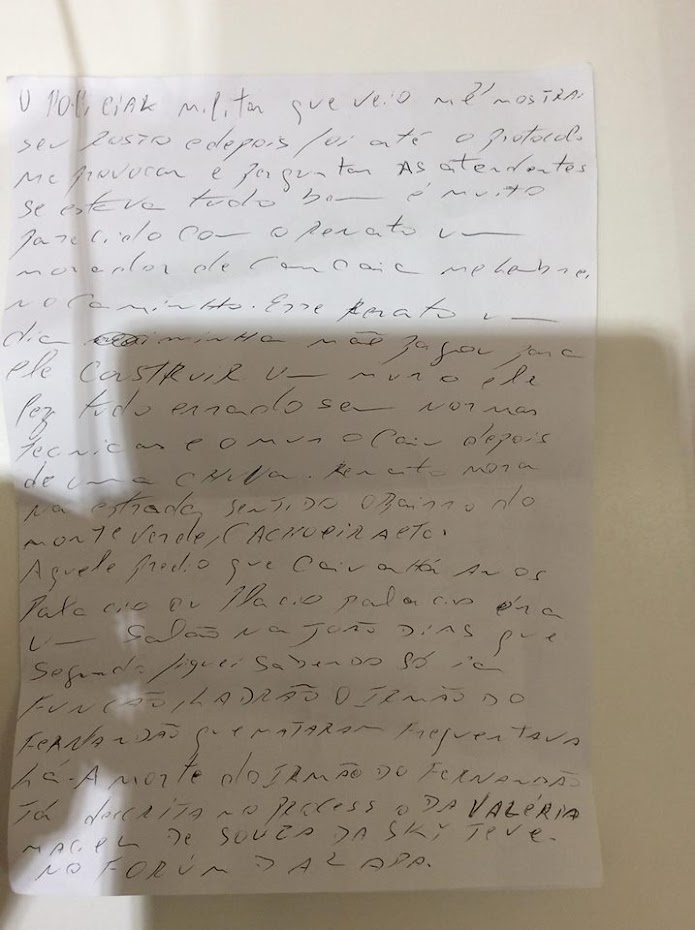 O POLICIAL militar que veio me mostrar
seu Rosto e depois foi até o protocolo
me provocar e perguntar AS atendentes
se estava tudo bem é muito
parecido com o Renato um
morador de me lembrei
no Caminho. Esse Renato um
dia minha mãe pagou para
ele CONSTRUIR um muro ele
fez tudo errado sem normas
tecnicas e o muro Caiu depois
de uma CHUVA. Renato mora
na estrada, SENTIDO O Bairro do
monte Verde, CACHOEIRAETC.
Aquele predio que Caiu Há Anos
Palacio ou Placio palacio era
um Salão na JOÃO DIAS que
Segundo fiquei Sabendo Só ia
LADRÃO O IRMÃO DO
FERNANDÃO que MATARAM frequentava
lá. A morte do IRMÃO DO FERNANDÃO
TÁ descrita no Processo DA VALÉRIA
MACIEL DE SOUZA DA SKY TEVE.
NO FORÚM DA LAPA.